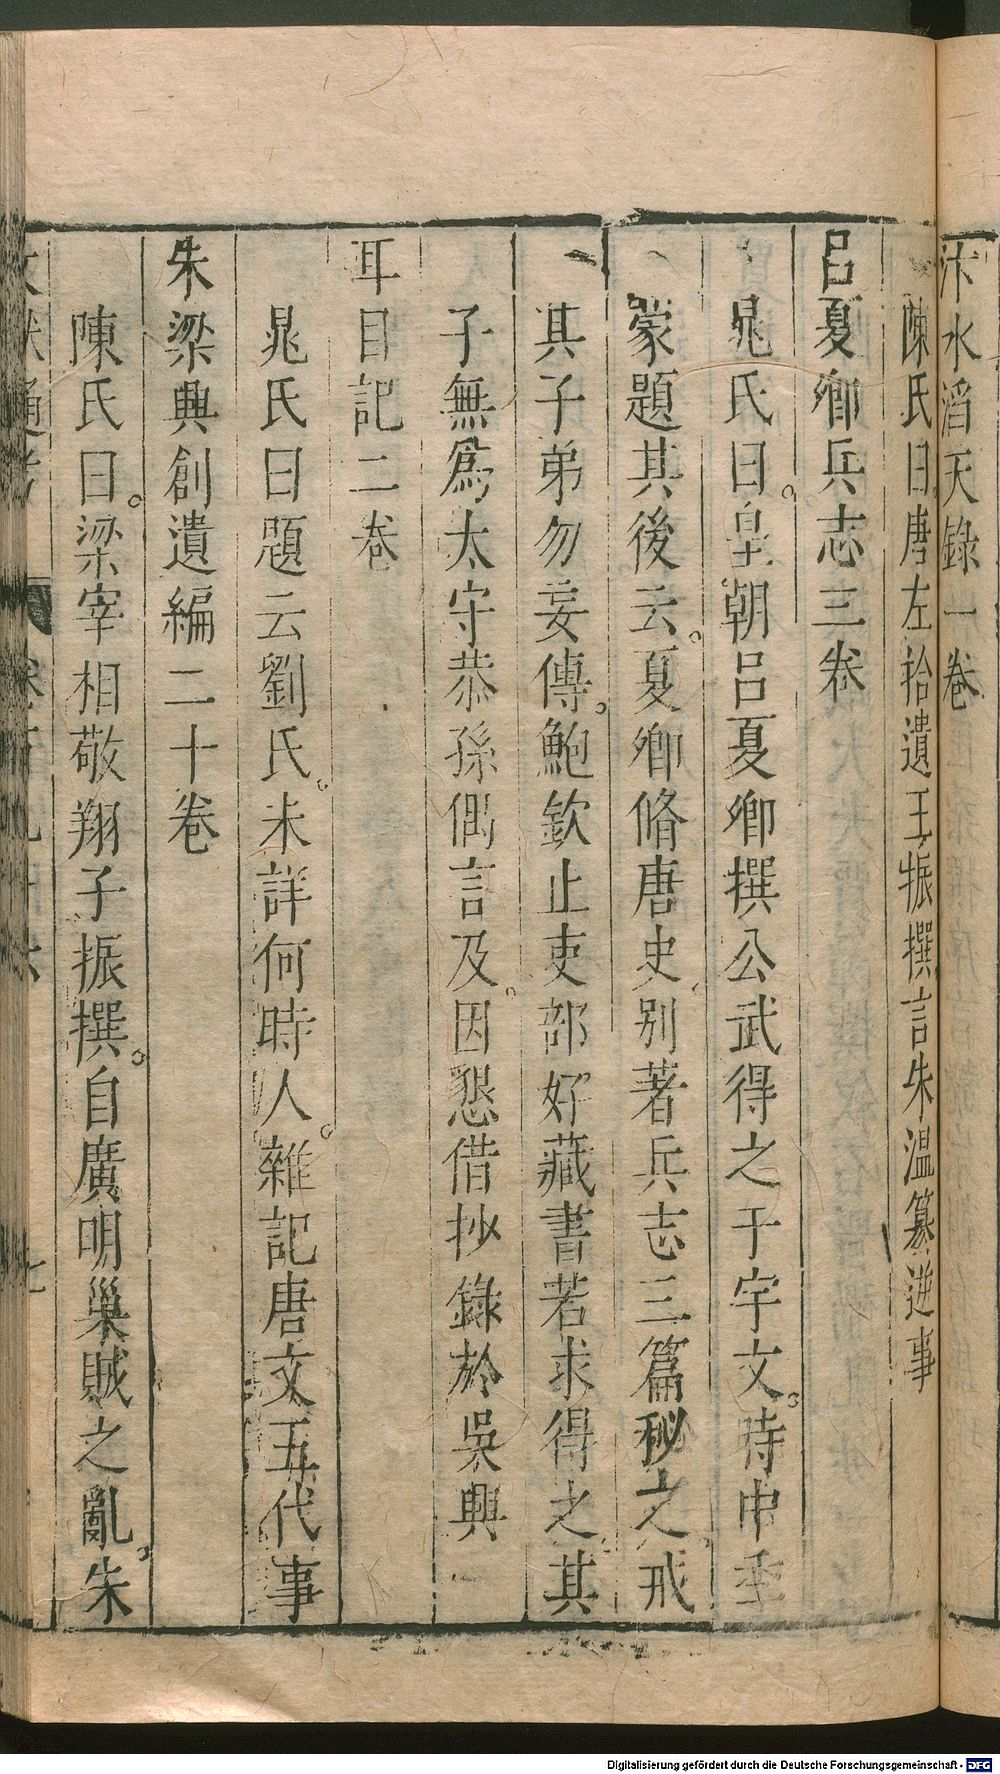 汴水滔天錄一卷
陳氏曰唐左拾遺王振撰言朱溫篡逆事
呂夏卿兵志三卷
晁氏曰皇朝呂夏卿撰公武得之于宇文時中季
蒙題其後云夏卿脩唐史別著兵志三篇秘之戒
其子弟勿妄傳鮑欽止吏部好藏書若求得之其
子無爲太守恭孫偶言及因懇借抄錄於吳興
耳目記二卷
晁氏曰題云劉氏未詳何時人雜記唐文五代事
朱梁興創遺編二十卷
陳氏曰梁宰相敬翔子振撰自廣明巢賊之亂朱
Digitalisierung gefördert durch die Deutsche Forschungsgemeinschaft - DFG